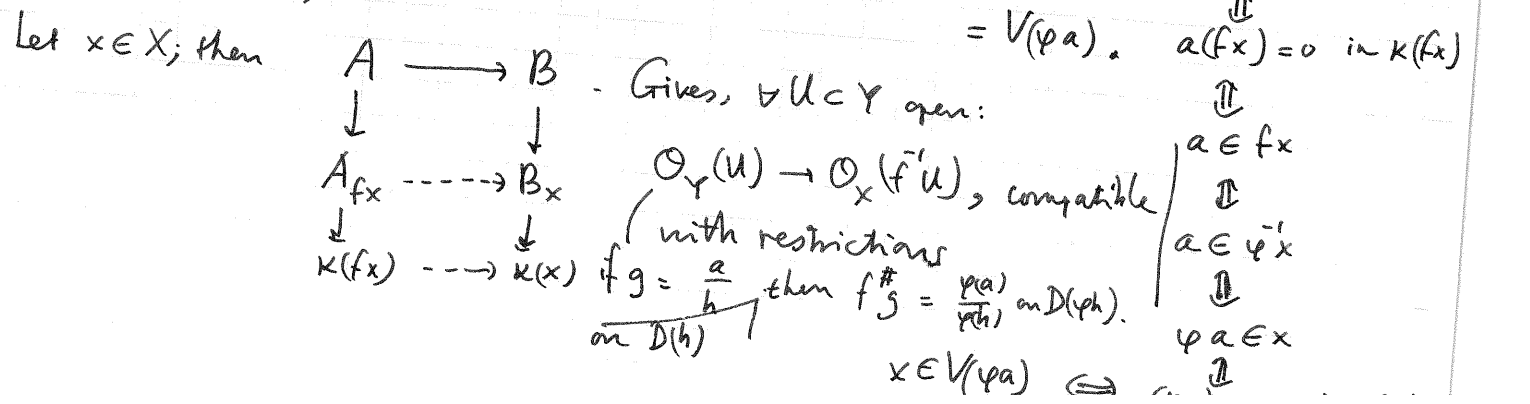 = V(φa). a(fx)=0 in κ(fx)
Let x ∈ X; then A ⟶ B . Gives, ∀ U ⊂ Y open:
⇕
↓ ↓
a ∈ fx
A_fx ----→ B_x O_Y(U) → O_X(f⁻¹U), compatible
⇕
↓ ↓ with restrictions
a ∈ φ⁻¹x
κ(fx) ---→ κ(x) if g = a/h then f^# g = φ(a)/φ(h) on D(φh).
⇕
on D(h)
φa ∈ x
⇕
x ∈ V(φa) ⇔